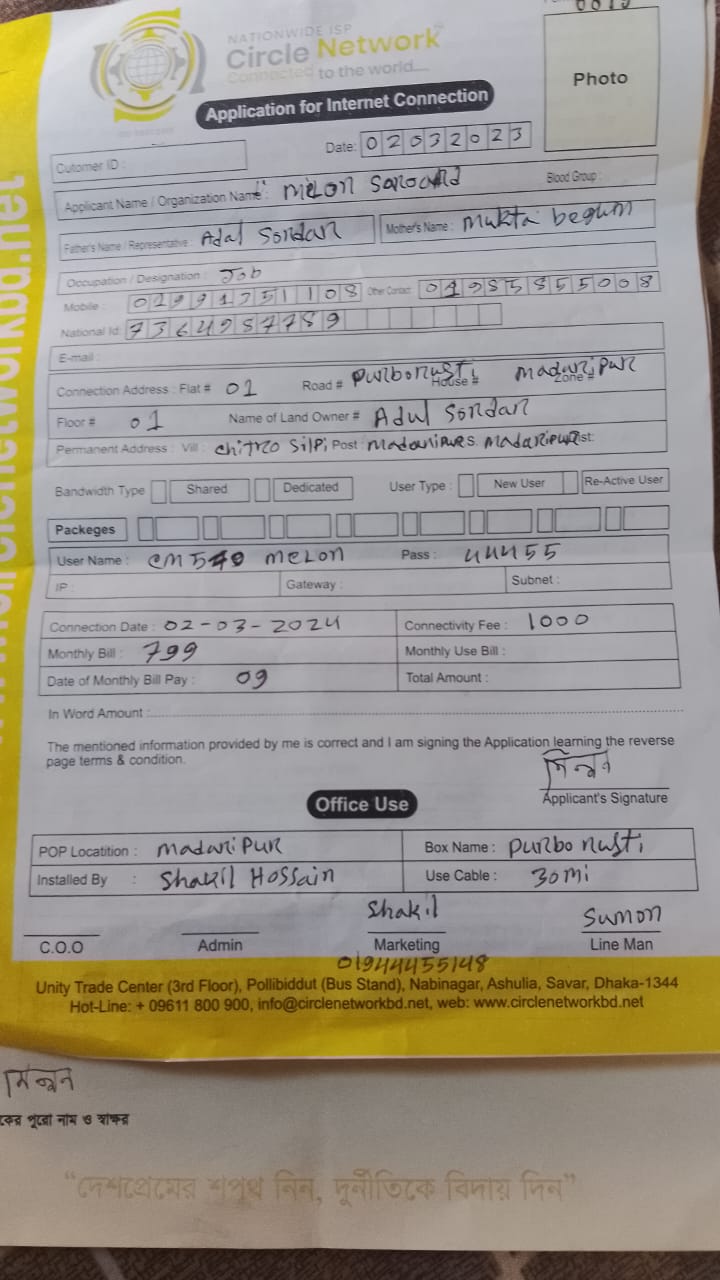 0019
NATIONWIDE ISP
Circle Network
Connected to the world....
Photo
Application for Internet Connection
Date: 02032023
Cutomer ID :
Applicant Name / Organization Name : MELON
Blood Group :
Father's Name / Representative : Adal Sordar Mother's Name : Mukta begum
Occupation / Designation : Job
Mobile : Other Contact :
National Id:
E-mail :
Connection Address : Flat # 01 Road # purborasti House # madaripur Zone #
Floor # 01 Name of Land Owner # Adul Sordar
Permanent Address : Vill : Chitro Silpi Post : madaripur P.S. madaripur Dist:
Bandwidth Type Shared Dedicated User Type : New User Re-Active User
Packeges
User Name : MELON Pass : 44455
IP : Gateway : Subnet :
Connection Date : 02-03-2024 Connectivity Fee : 1000
Monthly Bill : 799 Monthly Use Bill :
Date of Monthly Bill Pay : 09 Total Amount :
In Word Amount :
The mentioned information provided by me is correct and I am signing the Application learning the reverse
page terms & condition.
মিলন
Applicant's Signature
Office Use
POP Locatition : madaripur Box Name : purbo rasti
Installed By : Shakil Hossain Use Cable : 30mi
Shakil Sumon
C.O.O Admin Marketing Line Man
01944455148
Unity Trade Center (3rd Floor), Pollibiddut (Bus Stand), Nabinagar, Ashulia, Savar, Dhaka-1344
Hot-Line: + 09611 800 900, info@circlenetworkbd.net, web: www.circlenetworkbd.net
www.circlenetworkbd.net
মিলন
পুরো নাম ও স্বাক্ষর
“দেশপ্রেমের শপথ নিন, দুর্নীতিকে বিদায় দিন”